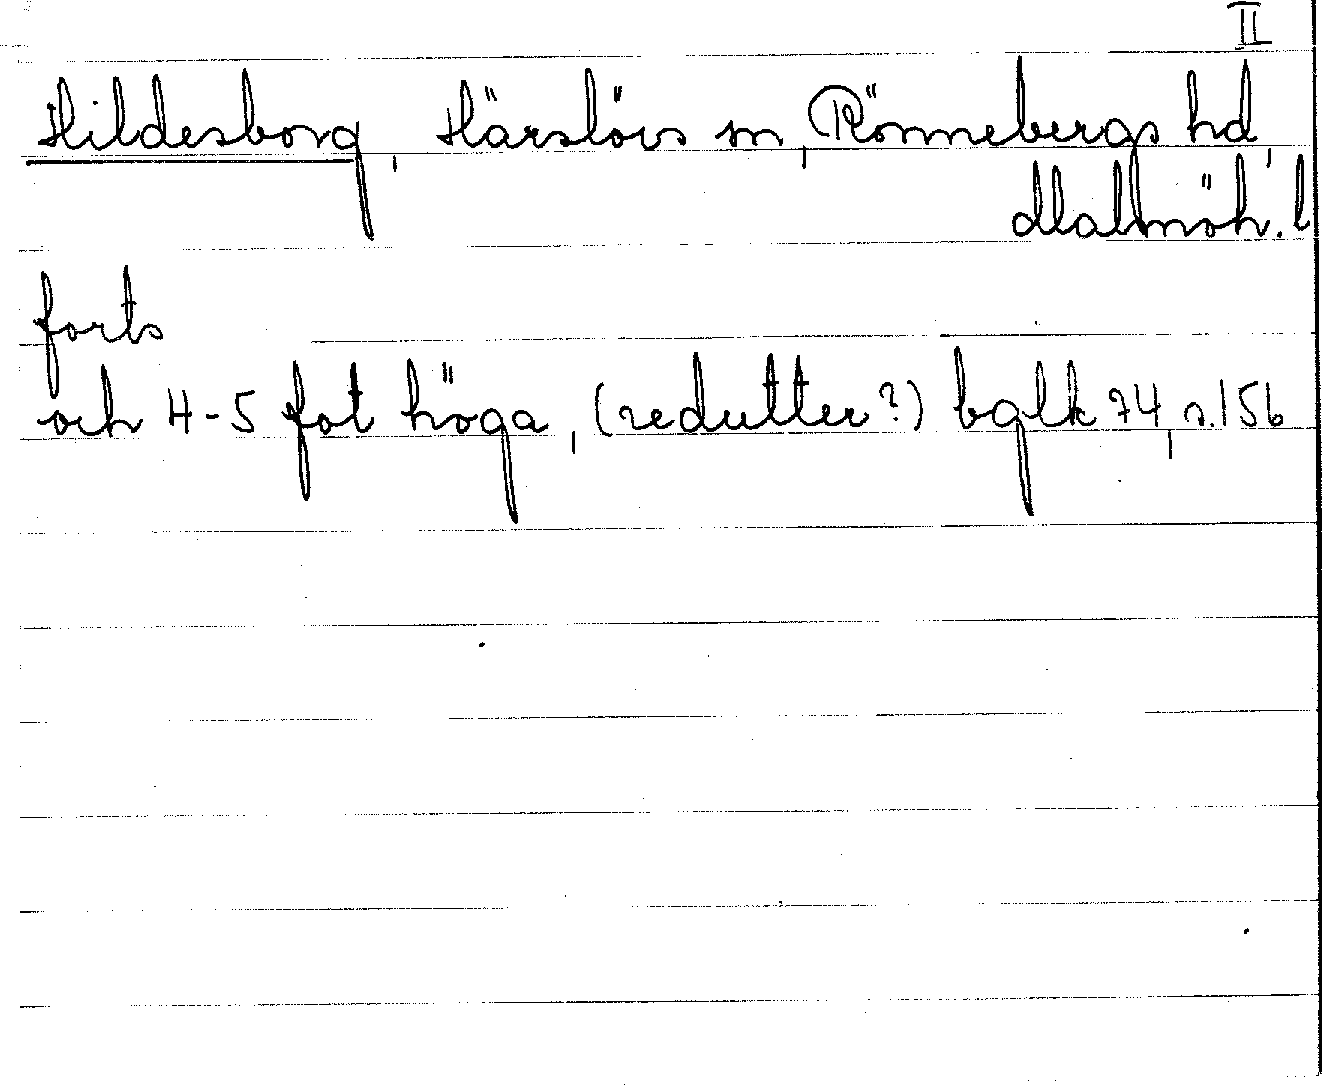 II
Hildesborg, Härslövs sn, Rönnebergs hd,
Malmöh. l
forts
och 4-5 fot höga, (redutter?) bglk 74, s.156